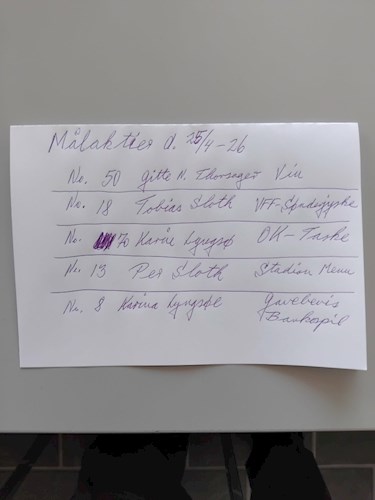 Målaktier d. 25/4-26
No. 50 Gitte N. Thorsager Vin
No. 18 Tobias Sloth VFF-Sønderjyske
No. 70 Karine Lyngsø OK-Taske
No. 13 Per Sloth Stadion Menu
No. 8 Karina Lyngsøe Gavebevis
Bankospil